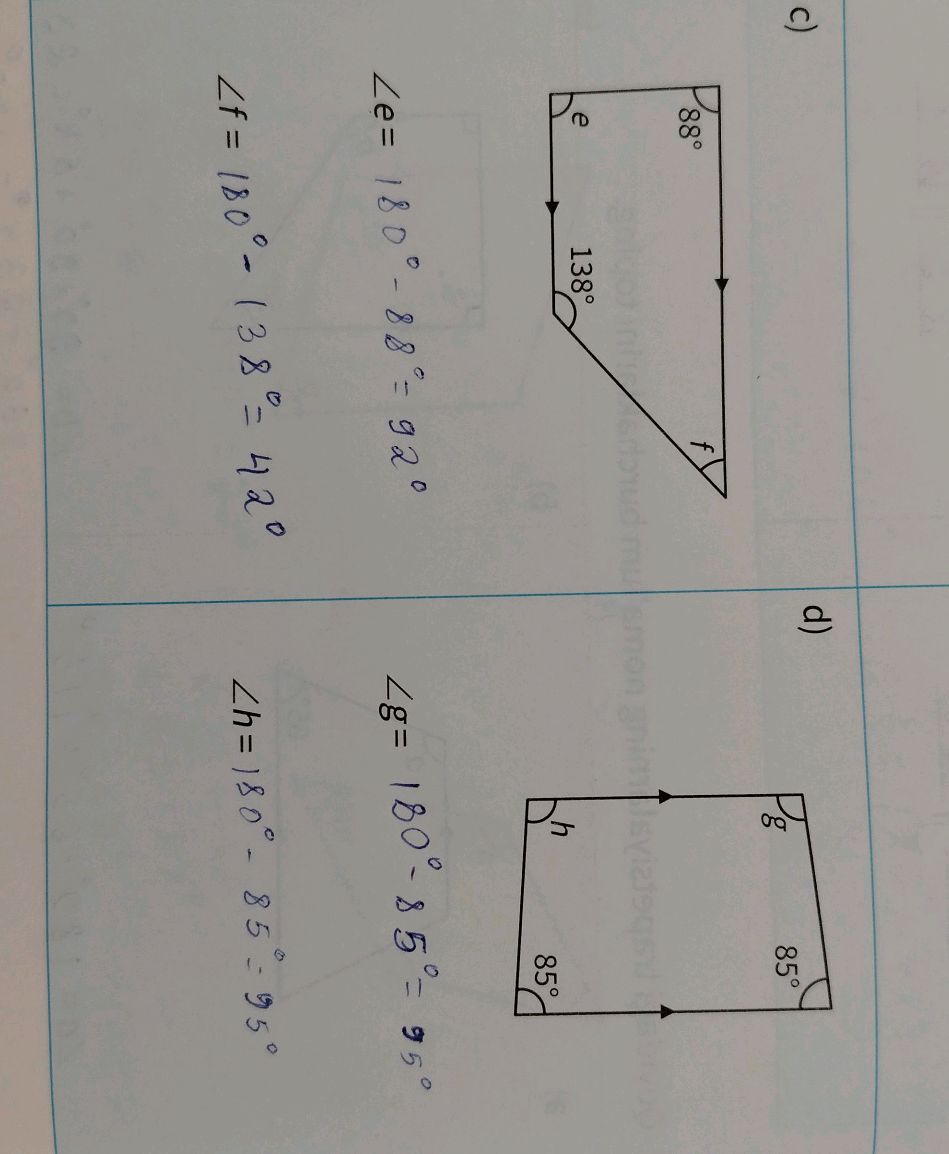 c)
88°
f
e
138°
∠e = 180° - 88° = 92°
∠f = 180° - 138° = 42°
d)
g
85°
h
85°
∠g = 180° - 85° = 95°
∠h = 180° - 85° = 95°